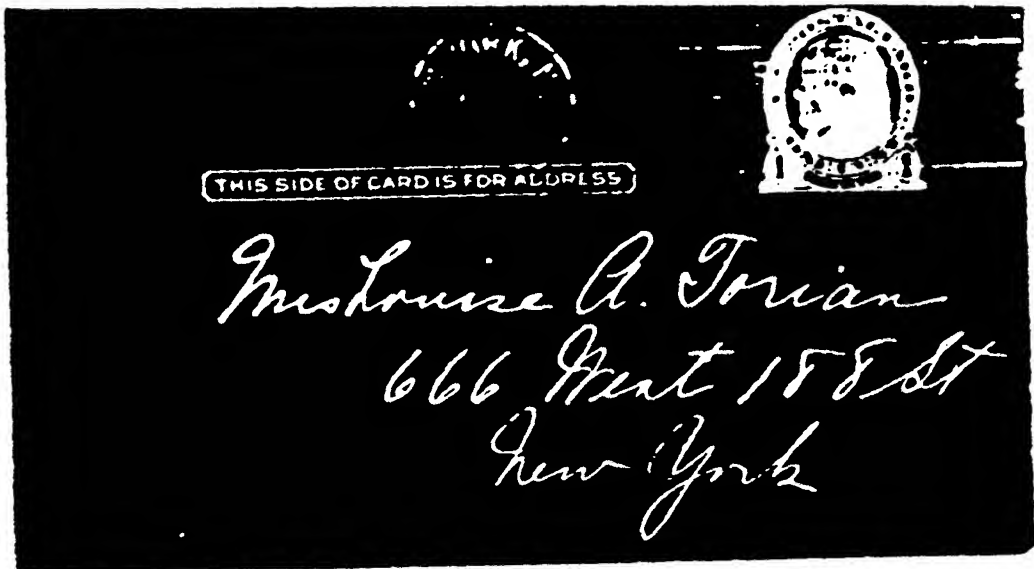 THIS SIDE OF CARD IS FOR ADDRESS
Miss Louise A. Torian
666 West 188 St
New York